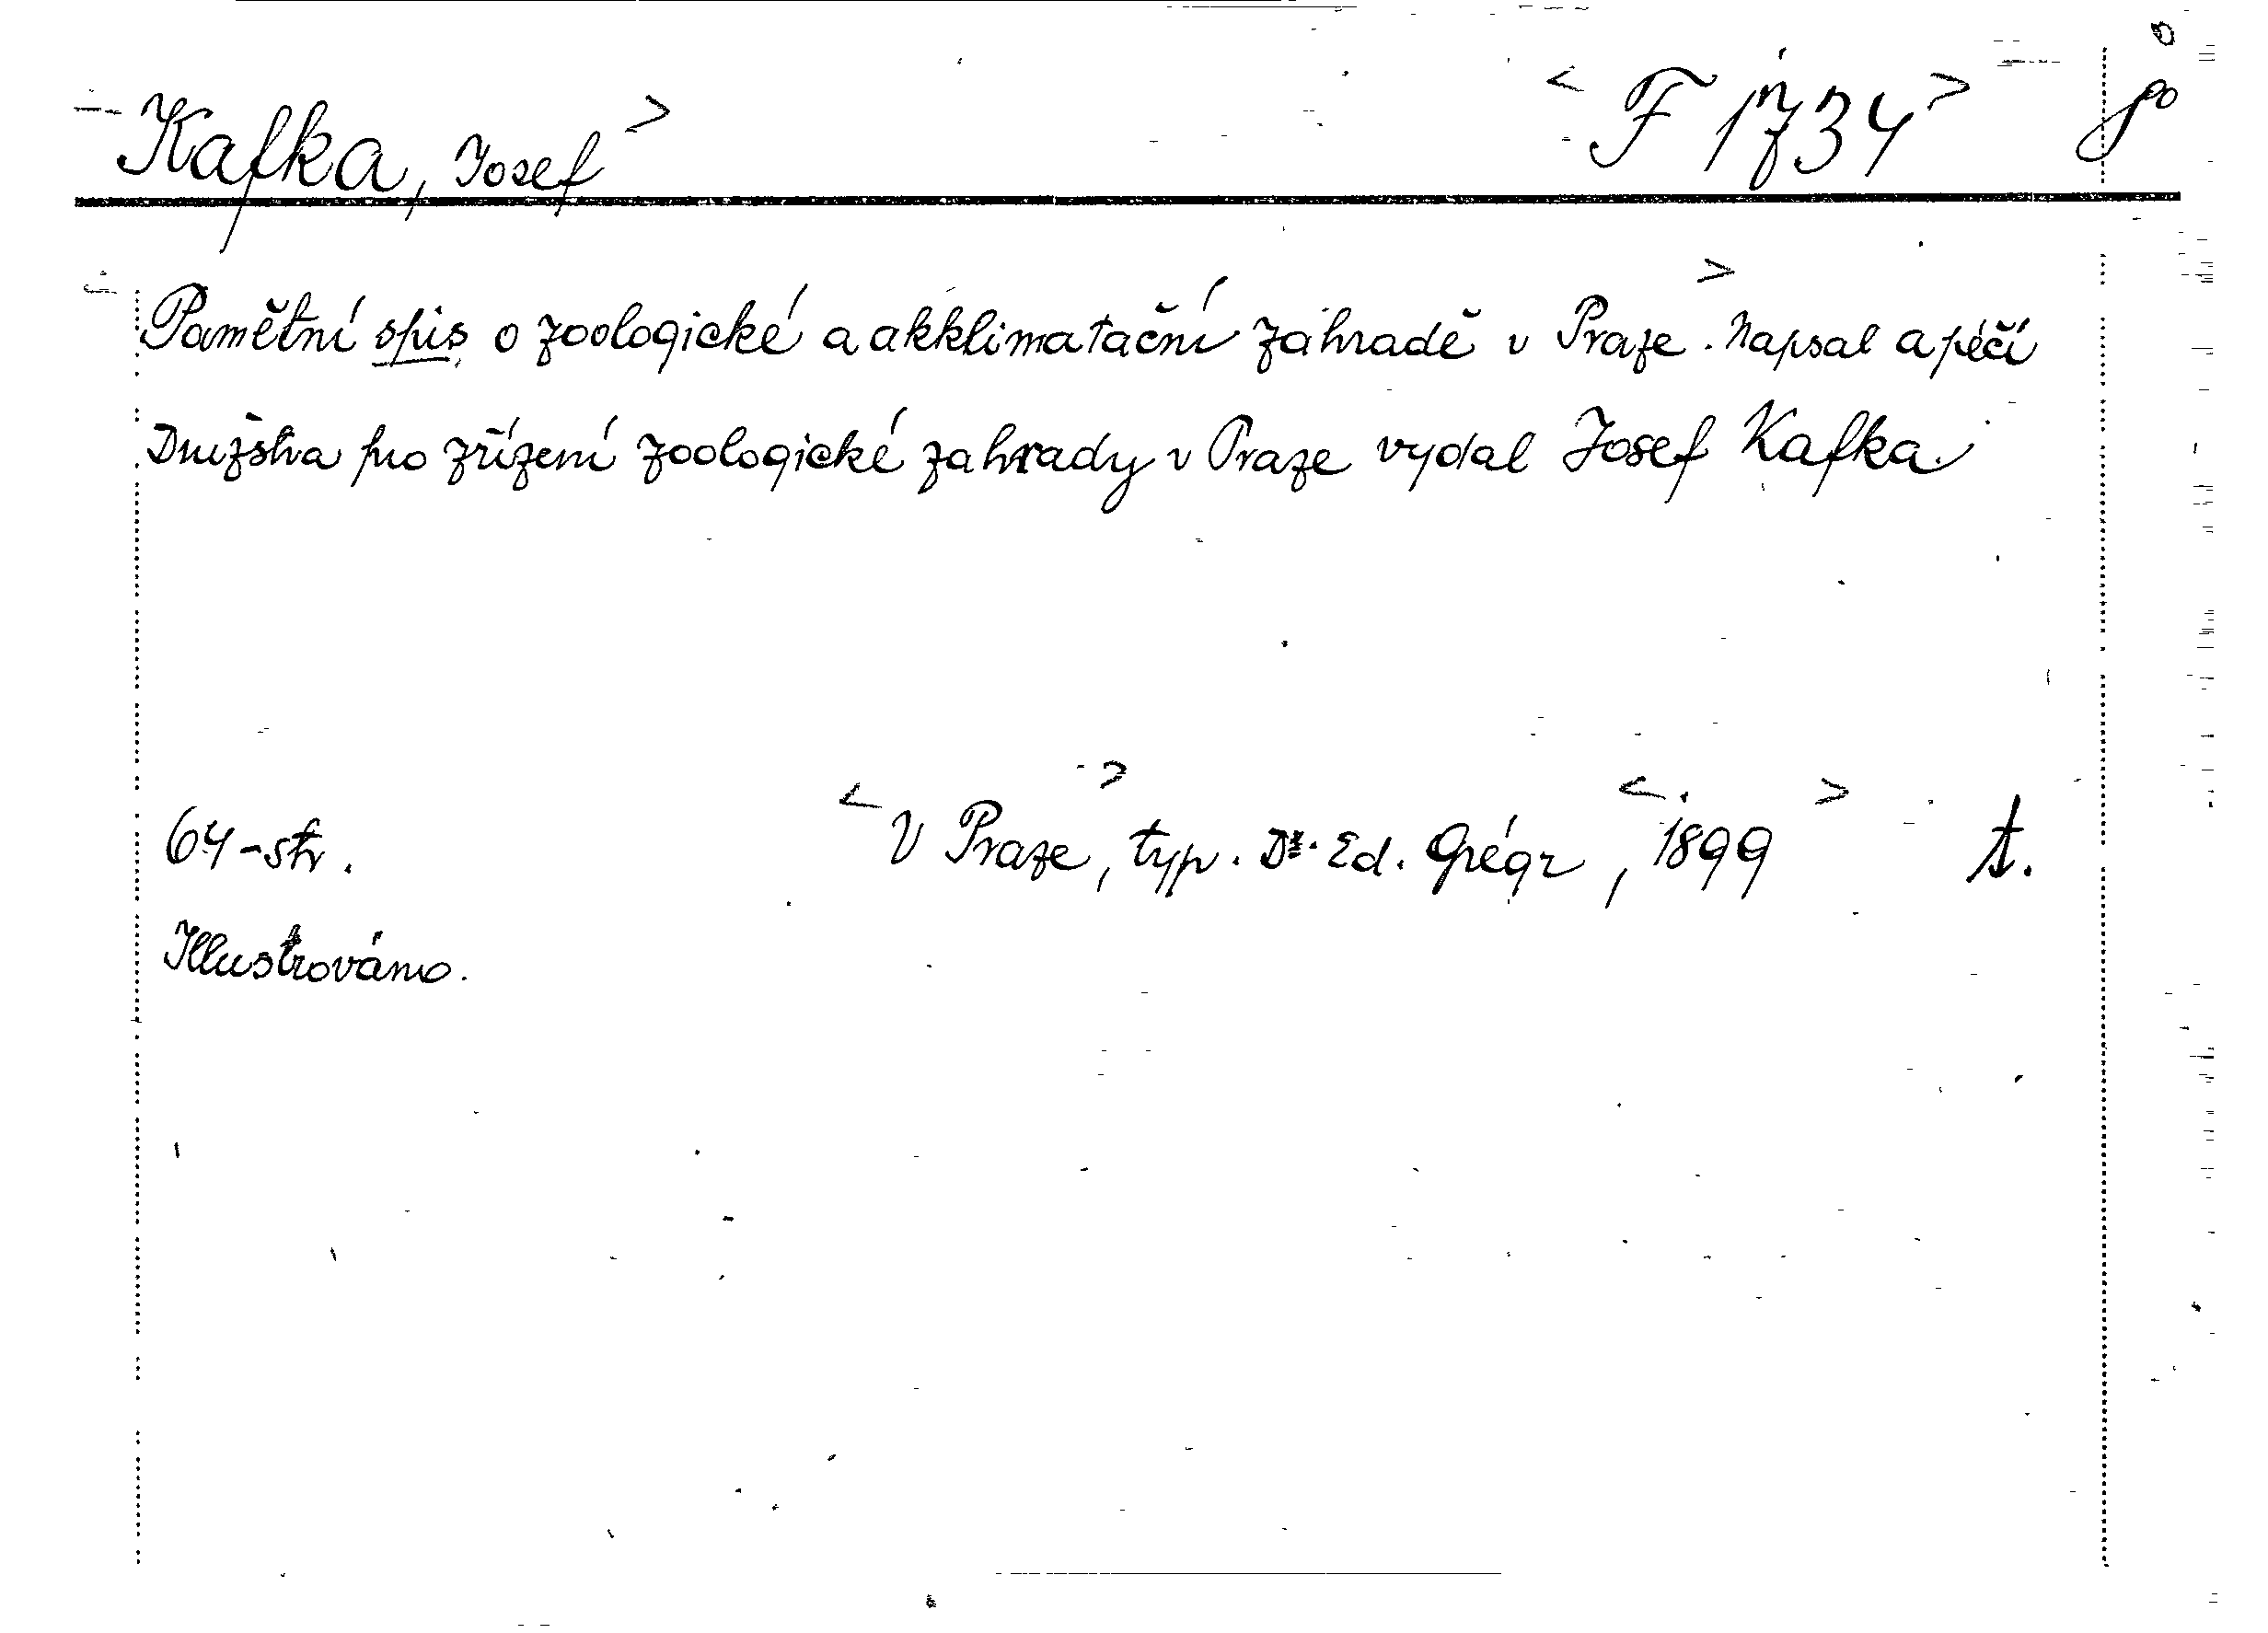 Kafka, Josef F 1734 8°
Pamětní spis o zoologické a akklimatační zahradě v Praze. Napsal a péčí
Družstva pro zřízení zoologické zahrady v Praze vydal Josef Kafka.
64 - str. V Praze, typ. Dr. Ed. Grégr, 1899 t.
Illustrováno.